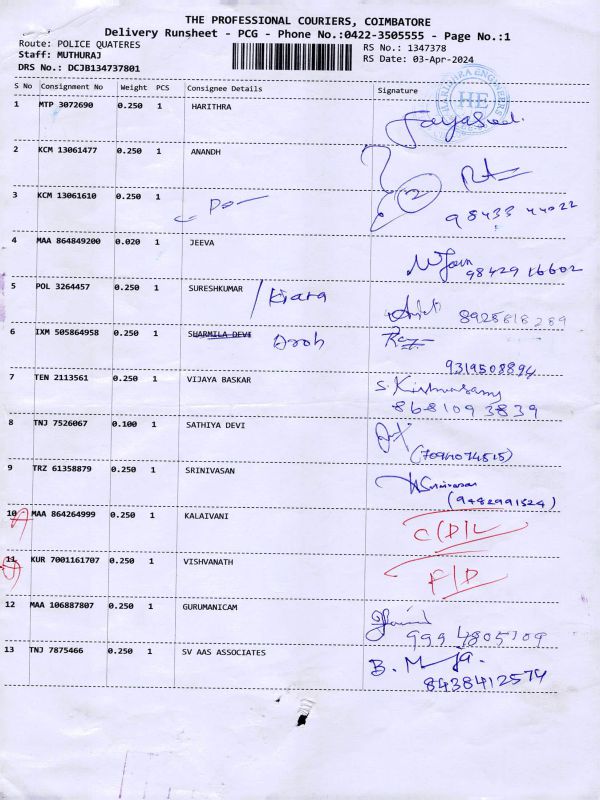 THE PROFESSIONAL COURIERS, COIMBATORE
Delivery Runsheet - PCG - Phone No.:0422-3505555 - Page No.:1
Route: POLICE QUATERES RS No.: 1347378
Staff: MUTHURAJ RS Date: 03-Apr-2024
DRS No.: DCJB134737801
S No Consignment No Weight PCS Consignee Details Signature
1 MTP 3072690 0.250 1 HARITHRA
2 KCM 13061477 0.250 1 ANANDH
3 KCM 13061610 0.250 1
98433 44022
4 MAA 864849200 0.020 1 JEEVA
98429 16602
5 POL 3264457 0.250 1 SURESHKUMAR / Kiara
8925618289
6 IXM 505864958 0.250 1 SHARMILA DEVI
9319508894
7 TEN 2113561 0.250 1 VIJAYA BASKAR S. Krishnasamy
8681093839
8 TNJ 7526067 0.100 1 SATHIYA DEVI
(7094074515)
9 TRZ 61358879 0.250 1 SRINIVASAN Srinivasan
(9482991524)
10 MAA 864264999 0.250 1 KALAIVANI C/D/L
11 KUR 7001161707 0.250 1 VISHVANATH F/D
12 MAA 106887807 0.250 1 GURUMANICAM
9994805309
13 TNJ 7875466 0.250 1 SV AAS ASSOCIATES
8438412574